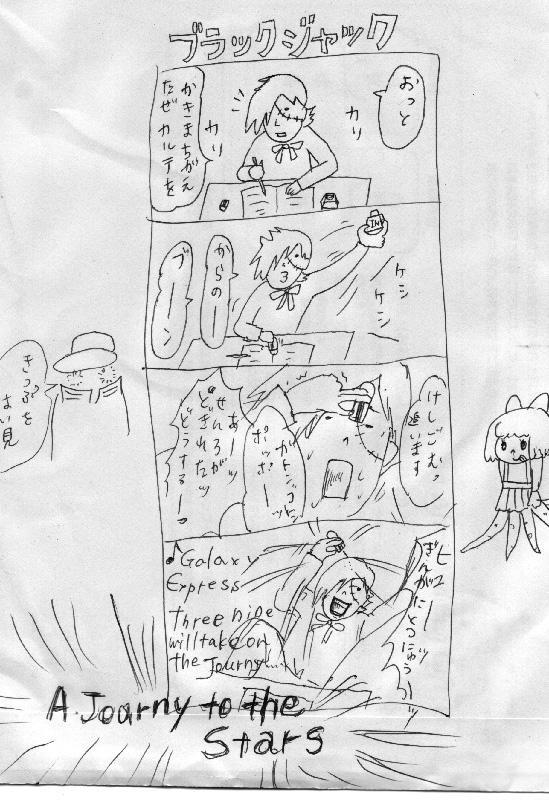 ブラックジャック
おっと
カリ
カリ
かきまちがえ
たぜ カルテを
ケシ
ケシ
からのー
ブーン
けしごむっ
違います
ガトンゴトン
ポッポーッ
あっ
せんろが
どぎれたッ
どうするーっ
きっぷを
はい見
ヒュー
ぎんがにとつにゅうかーッ
♪Galaxy
Express
three nine
will take on
the Journy....
A Joarny to the
Stars